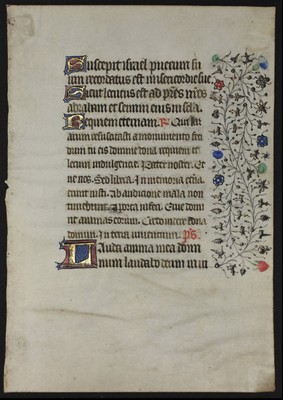 Suscepit israel puerum su
um recordatus est misericordie sue
Sicut locutus est ad pres nros
abraham et semini eius in sela
Requiem eternam. Qui la
zarum resuscitasti a monumento feti
dum tu eis domine dona requiem et
locum indulgencie. Pater noster. Et
ne nos. Sed libera. In memoria eterna
erunt iusti. Ab auditione mala non
timebunt. A porta inferi. Erue domi
ne animas eorum. Credo videre bona
domini. In terra viventium. ps.
Lauda anima mea domi
num laudabo deum in vi